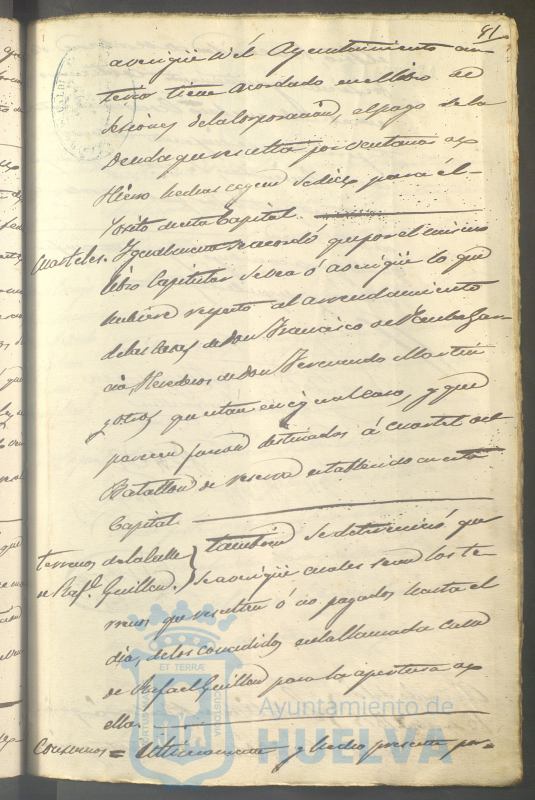 81
averigüe si el Ayuntamiento an-
terior tiene acordado en el libro de
sesiones de la Corporacion, el pago de la
Deuda que resulta por ventanas de
Hierro hechas para el
Posito de esta Capital.
Cuarteles. Igualmente se acordó que por el mismo
libro Capitular se vea ó averigüe lo que
hubiere respecto al arrendamiento
de las Casas de Don Francisco de
Herederos de Don Fernando Martin
y otros que estan en igual caso, y que
parecen fueron destinados á cuartel del
Batallon de reserva establecido en esta
Capital.
terrenos de la calle
de Raf.l Guillen. Tambien se determinó que
se averigüe cuales sean los te-
rrenos que resulten ó no pagados hasta el
dia, de los concedidos en la llamada Calle
de Rafael Guillen para la apertura de
ella.
Consumos = Ultimamente y hecho presente por
ET TERRÆ
Ayuntamiento de
HUELVA